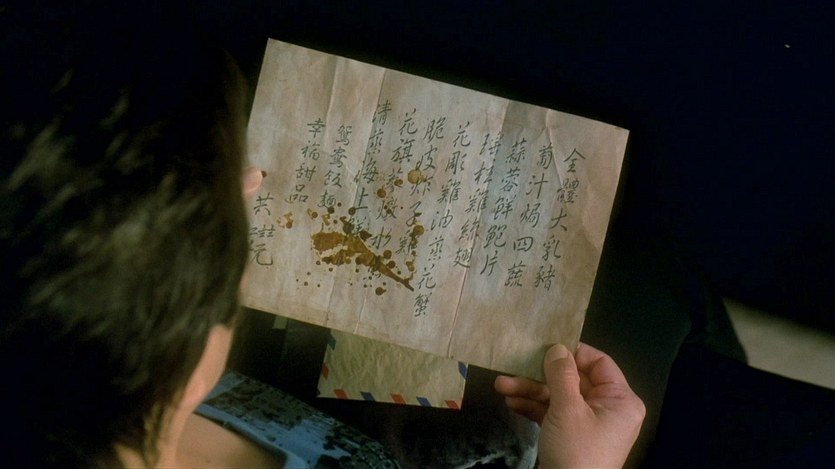 全體大乳豬
葡汁焗四蔬
蒜蓉鮮鮑片
瑤柱雞絲翅
花雕雞油蒸花蟹
脆皮炸子雞
花旗參燉水
清蒸海上鮮
鴛鴦飯麵
幸福甜品
共 元